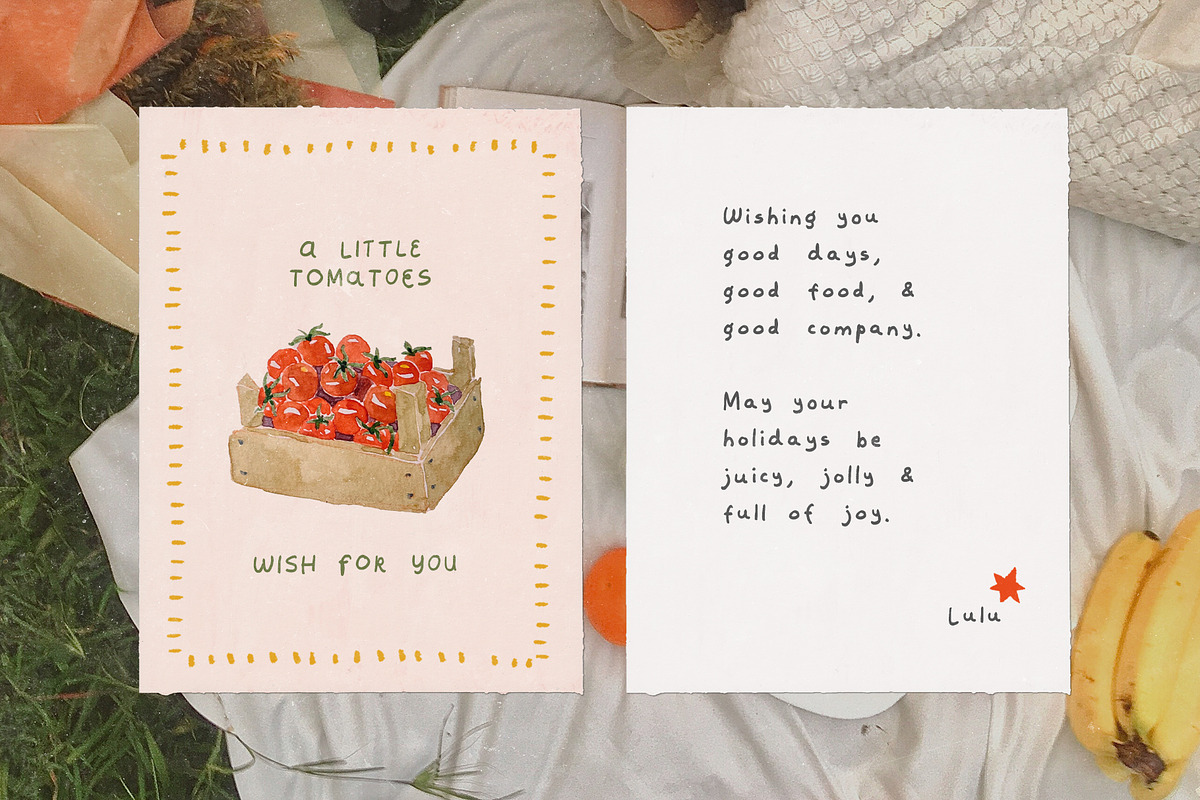 a LITTLE
TOMaTOES
WISH FOR YOU
Wishing you
good days,
good food, &
good company.
May your
holidays be
juicy, jolly &
full of joy.
Lulu